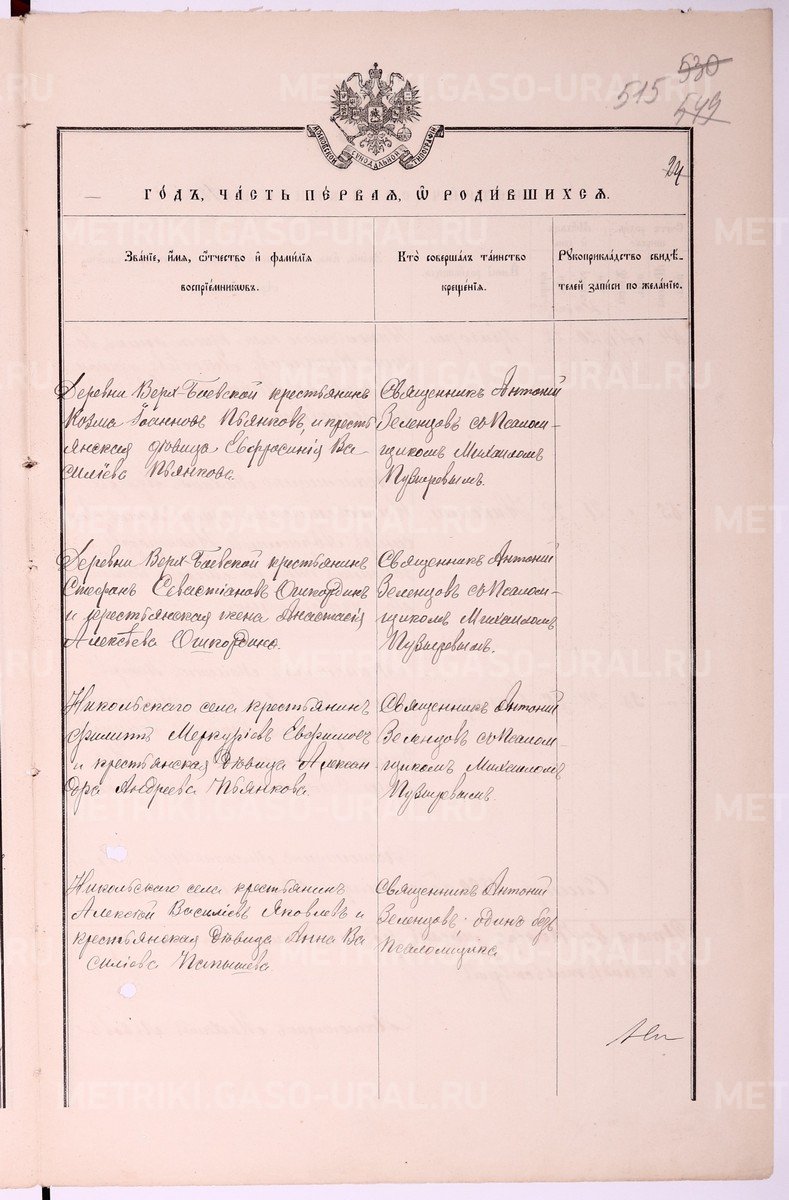 530
515 543
МОСКОВСКОЙ СУНОДАЛЬНОЙ ТИПОГРАФІИ
24
ГОДЪ, ЧАСТЬ ПЕРВАЯ, Ѡ РОДИВШИХСЯ.
Званіе, имя, ѻтчество и фамилія
воспріемниковъ.
Кто совершалъ таинство
крещенія.
Рукоприкладство свидѣ-
телей записи по желанію.
Деревни Верх-Боевской крестьянинъ
Козма Іоанновъ Пьянковъ, и кресть
янская дѣвица Евфросинія Ва-
силіева Пьянкова.
Священникъ Антоній
Зеленцовъ съ Псалом-
щикомъ Михаиломъ
Пузыревымъ.
Деревни Верх-Боевской крестьянинъ
Стефанъ Севастіановъ Ошкординъ
и крестьянская жена Анастасія
Алексѣева Ошкордина.
Священникъ Антоній
Зеленцовъ съ Псалом-
щикомъ Михаиломъ
Пузыревымъ.
Никольскаго села крестьянинъ
Филиппъ Меркуріевъ Евфимовъ
и крестьянская дѣвица Алексан
дра Андреева Пьянкова.
Священникъ Антоній
Зеленцовъ съ Псалом-
щикомъ Михаиломъ
Пузыревымъ.
Никольскаго села крестьянинъ
Алексѣй Василіевъ Яковлевъ и
крестьянская дѣвица Анна Ва
силіева Папышева.
Священникъ Антоній
Зеленцовъ, одинъ безъ
Псаломщика
METRIKI.GASO-URAL.RU